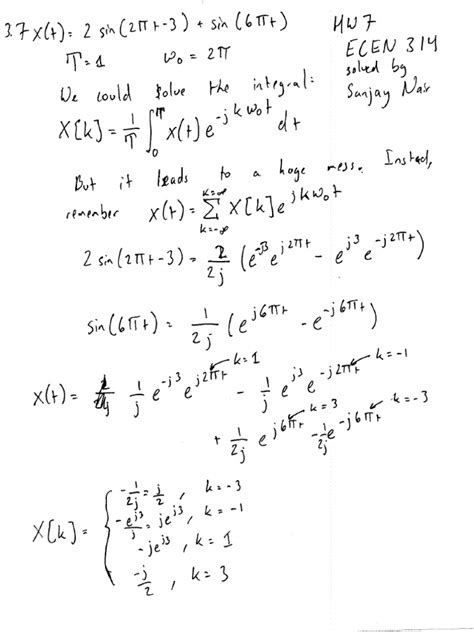 3.7 x(t) = 2 sin(2πt-3) + sin(6πt)
HW7
ECEN 314
solved by
Sanjay Nair
T=1 ω₀ = 2π
We could solve the integral:
X[k] = 1/T ∫₀ᵀ x(t) e^(-jkω₀t) dt
But it leads to a huge mess. Instead,
remember x(t) = Σ_(k=-∞)^(k=∞) X[k] e^(jkω₀t)
2 sin(2πt-3) = 2/2j (e^(-j3) e^(j2πt) - e^(j3) e^(-j2πt))
sin(6πt) = 1/2j (e^(j6πt) - e^(-j6πt))
x(t) = 1/j e^(-j3) e^(j2πt) k=1 - 1/j e^(j3) e^(-j2πt) k=-1
+ 1/2j e^(j6πt) k=3 - 1/2j e^(-j6πt) k=-3
X[k] = {
-1/2j = j/2, k=-3
-e^(j3)/j = je^(j3), k=-1
-je^(j3), k=1
-j/2, k=3